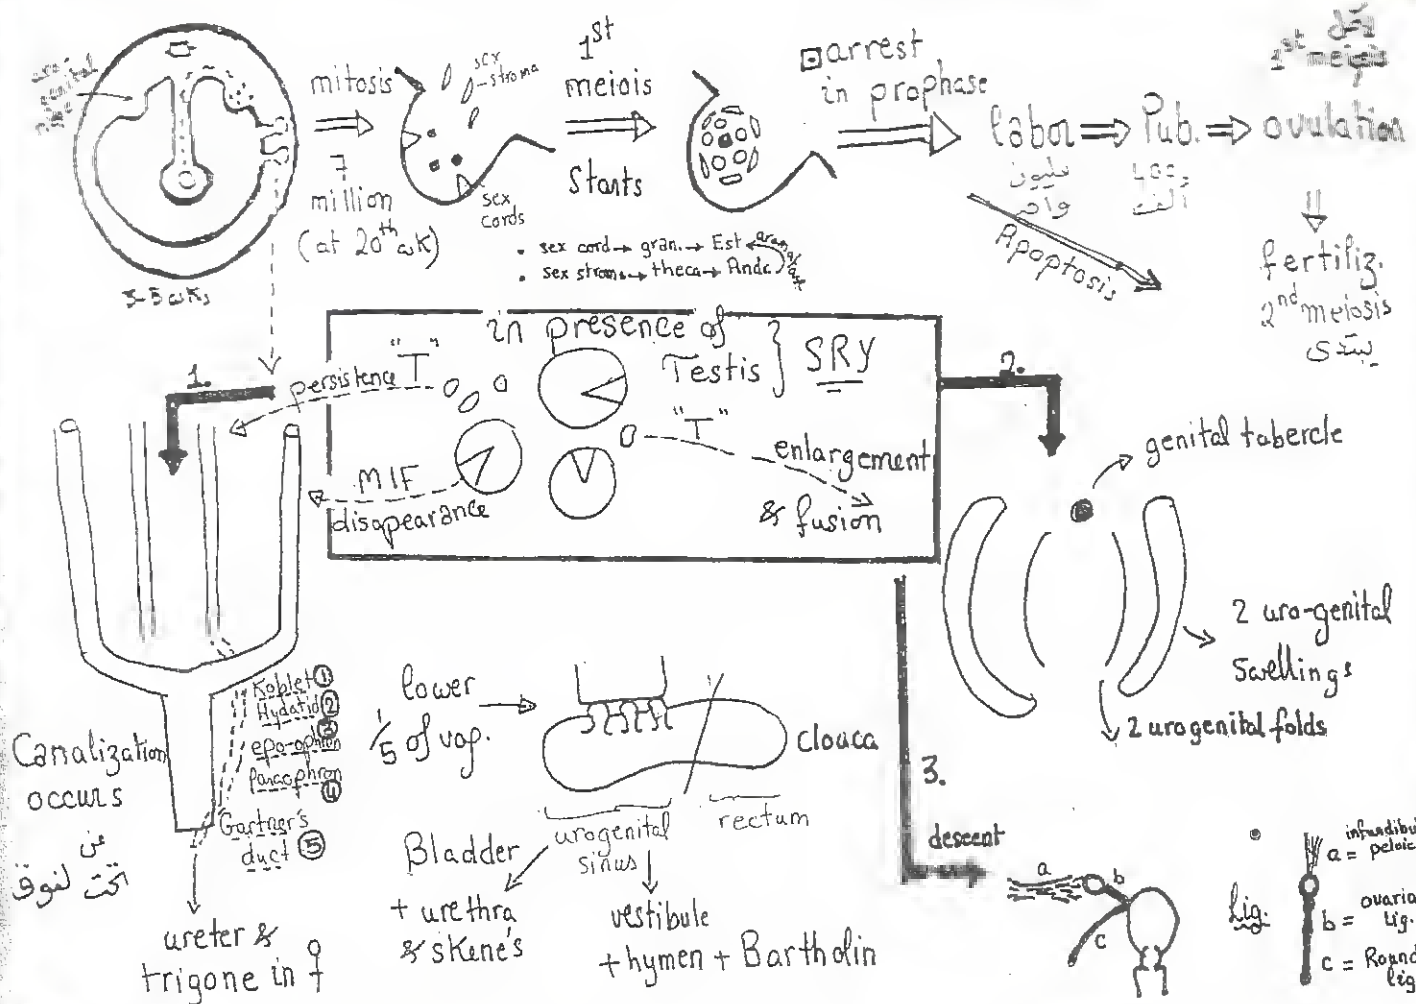 uro
genital
ridge
3-5 wks
mitosis
7
million
(at 20th wk)
sex
-stroma
sex
cords
1st
meiois
Starts
• sex cord → gran. → Est
• sex stroma → theca → Andr
arrest
in prophase
labor ⇒ Pub. ⇒ ovulation
مليون
واحد
400,
ألف
1st meiosis
Apoptosis
fertiliz.
2nd meiosis
in presence of
Testis } SRY
"T"
persistence
MIF
disapearance
"T"
enlargement
& fusion
1.
2.
genital tabercle
2 uro-genital
Swellings
2 urogenital folds
Koblet ①
Hydatid ②
epo-ophron ③
Paraophron
④
Gartner's
duct ⑤
Canalization
occurs
عن
ureter &
trigone in ♀
lower
1/5 of vag.
cloaca
urogenital
sinus
rectum
Bladder
+ urethra
& skene's
vestibule
+ hymen + Bartholin
3.
descent
a
b
c
lig.
a = infundibu
pelvic
b = ovaria
Lig.
c = Round
lig